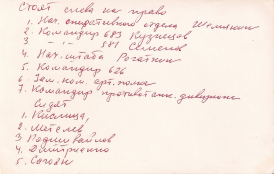 Стоят слева на право
1. Нач. оперативного отдела Шемякин
2. Командир 683 Кузнецов
3. -"- 581 Семенов
4. Нач. штаба Рогаткин
5. Командир 626
6. Зам. ком. арт. полка
7. Командир противотанк. дивизиона
Сидят
1. Кислица,
2. Метелев
3. Родионов
4. Дмитриенко
5. Согоян